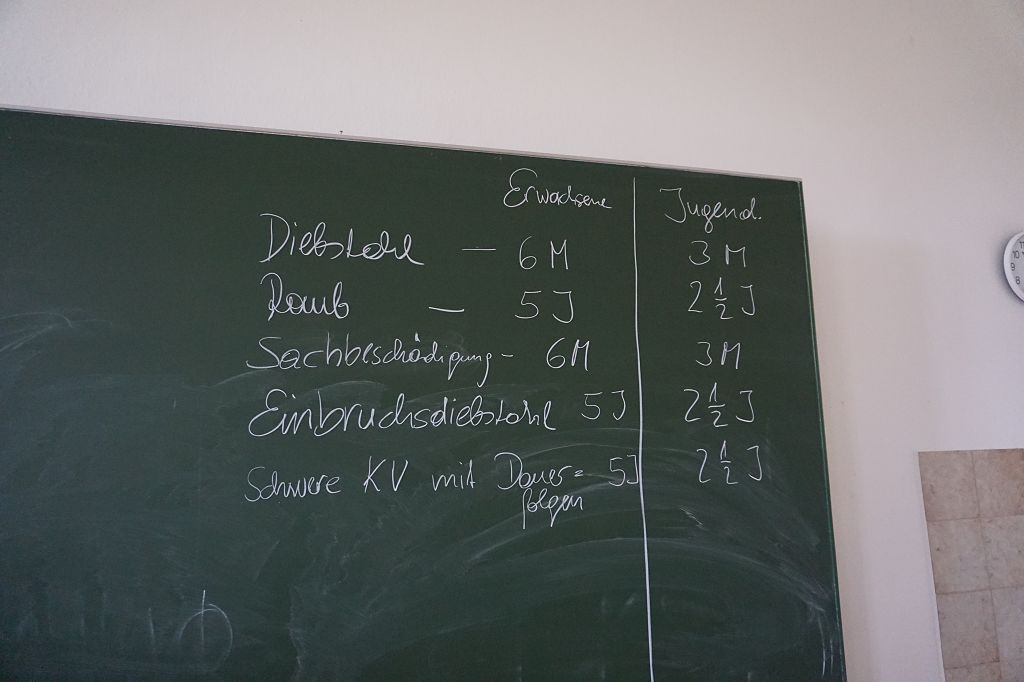 Erwachsene Jugend.
Diebstahl — 6 M 3 M
Raub — 5 J 2 1/2 J
Sachbeschädigung - 6 M 3 M
Einbruchsdiebstahl 5 J 2 1/2 J
Schwere KV mit Dauer= 5 J 2 1/2 J
folgen
11
10
9
8